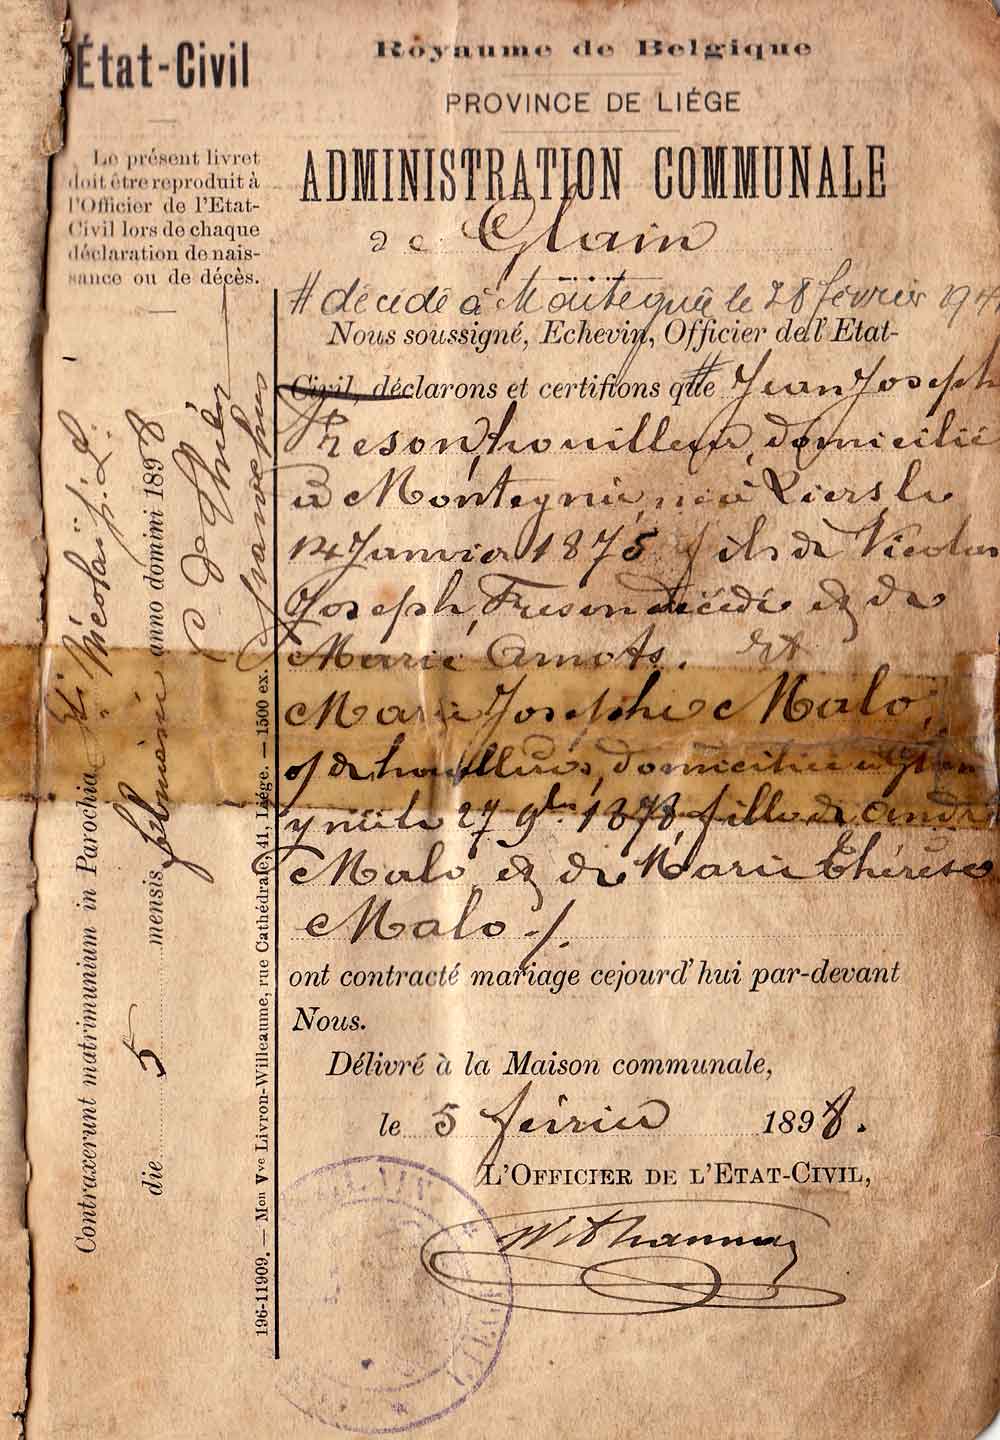 État-Civil
Le présent livret
doit être reproduit à
l'Officier de l'Etat-
Civil lors de chaque
déclaration de nais-
sance ou de décès.
Royaume de Belgique
PROVINCE DE LIÉGE
ADMINISTRATION COMMUNALE
de Glain
# décédé à le 28 février
Nous soussigné, Echevin, Officier de l'Etat-
Civil, déclarons et certifions que # Jean Joseph
Freson, houilleur, domicilié
à Montegnée, né à Liers le
14 Janvier 1875 fils de Nicolas
Joseph Freson décédé et de
Marie Amots. Et
Marie Josephe Malo,
domiciliée à Glain
y née le 27 9bre 1878, fille de André
Malo et de Marie Thérèse
Malo ./.
ont contracté mariage cejourd'hui par-devant
Nous.
Délivré à la Maison communale,
le 5 février 1898.
L'OFFICIER DE L'ETAT-CIVIL,
Contraxerunt matrimunium in Parochia Sti Nicolaï
die 5 mensis februarii anno domini 1898
196-11909. — Mon Vve Livron-Willeaume, rue Cathédrale, 41, Liége. — 1500 ex.